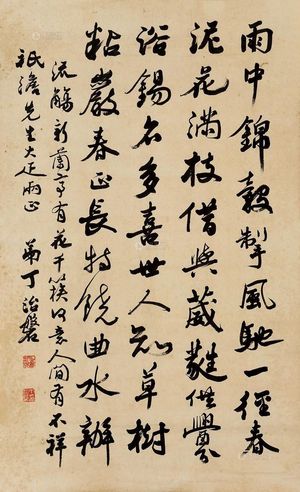 雨中錦縠掣風馳一徑春
泥花滿枝借與葳蕤供釁
浴錫名多喜世人知草樹
粘巖春正長特饒曲水辦
流觴新蘭亭有花千簇得意人間有不祥
祇澹先生大疋兩正 弟丁治磐